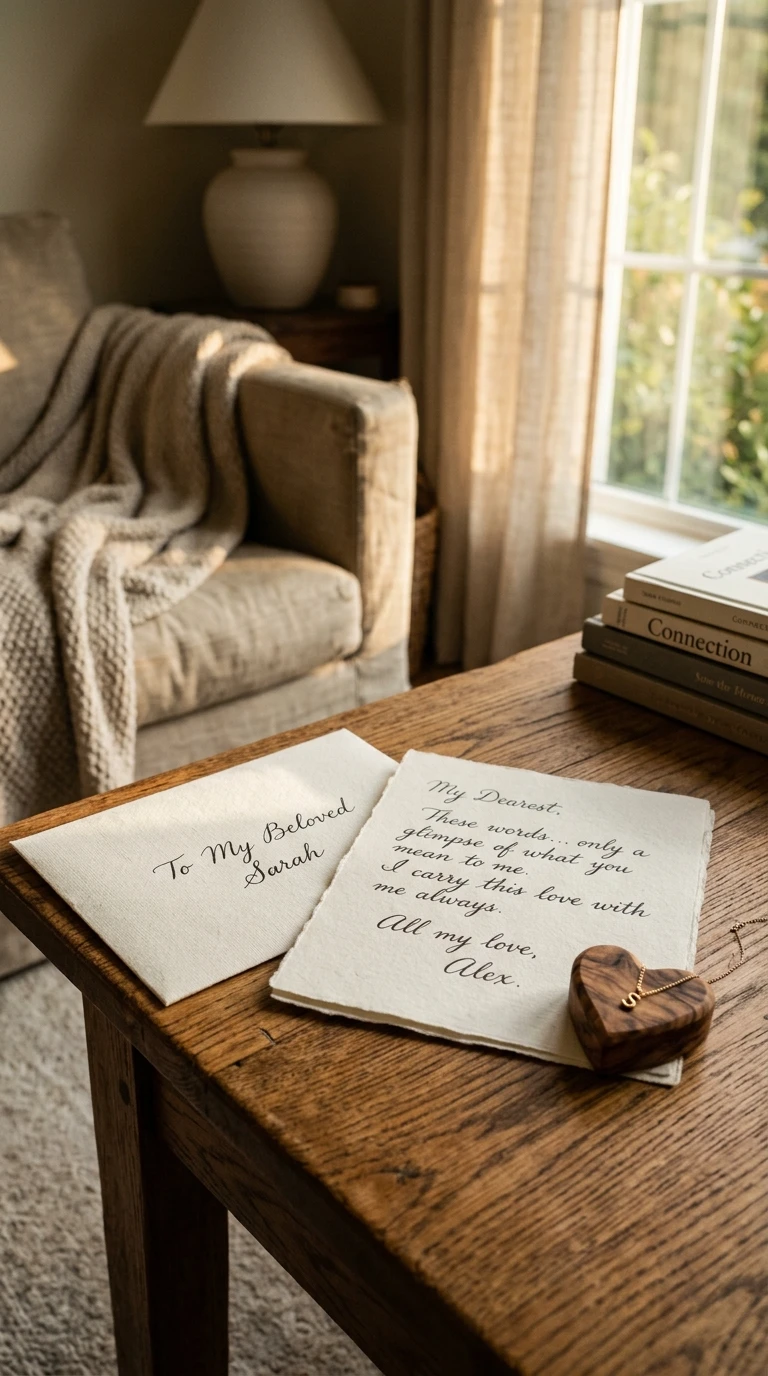 To My Beloved
Sarah
My Dearest,
These words... only a
glimpse of what you
mean to me.
I carry this love with
me always.
All my love,
Alex.
S
Connection